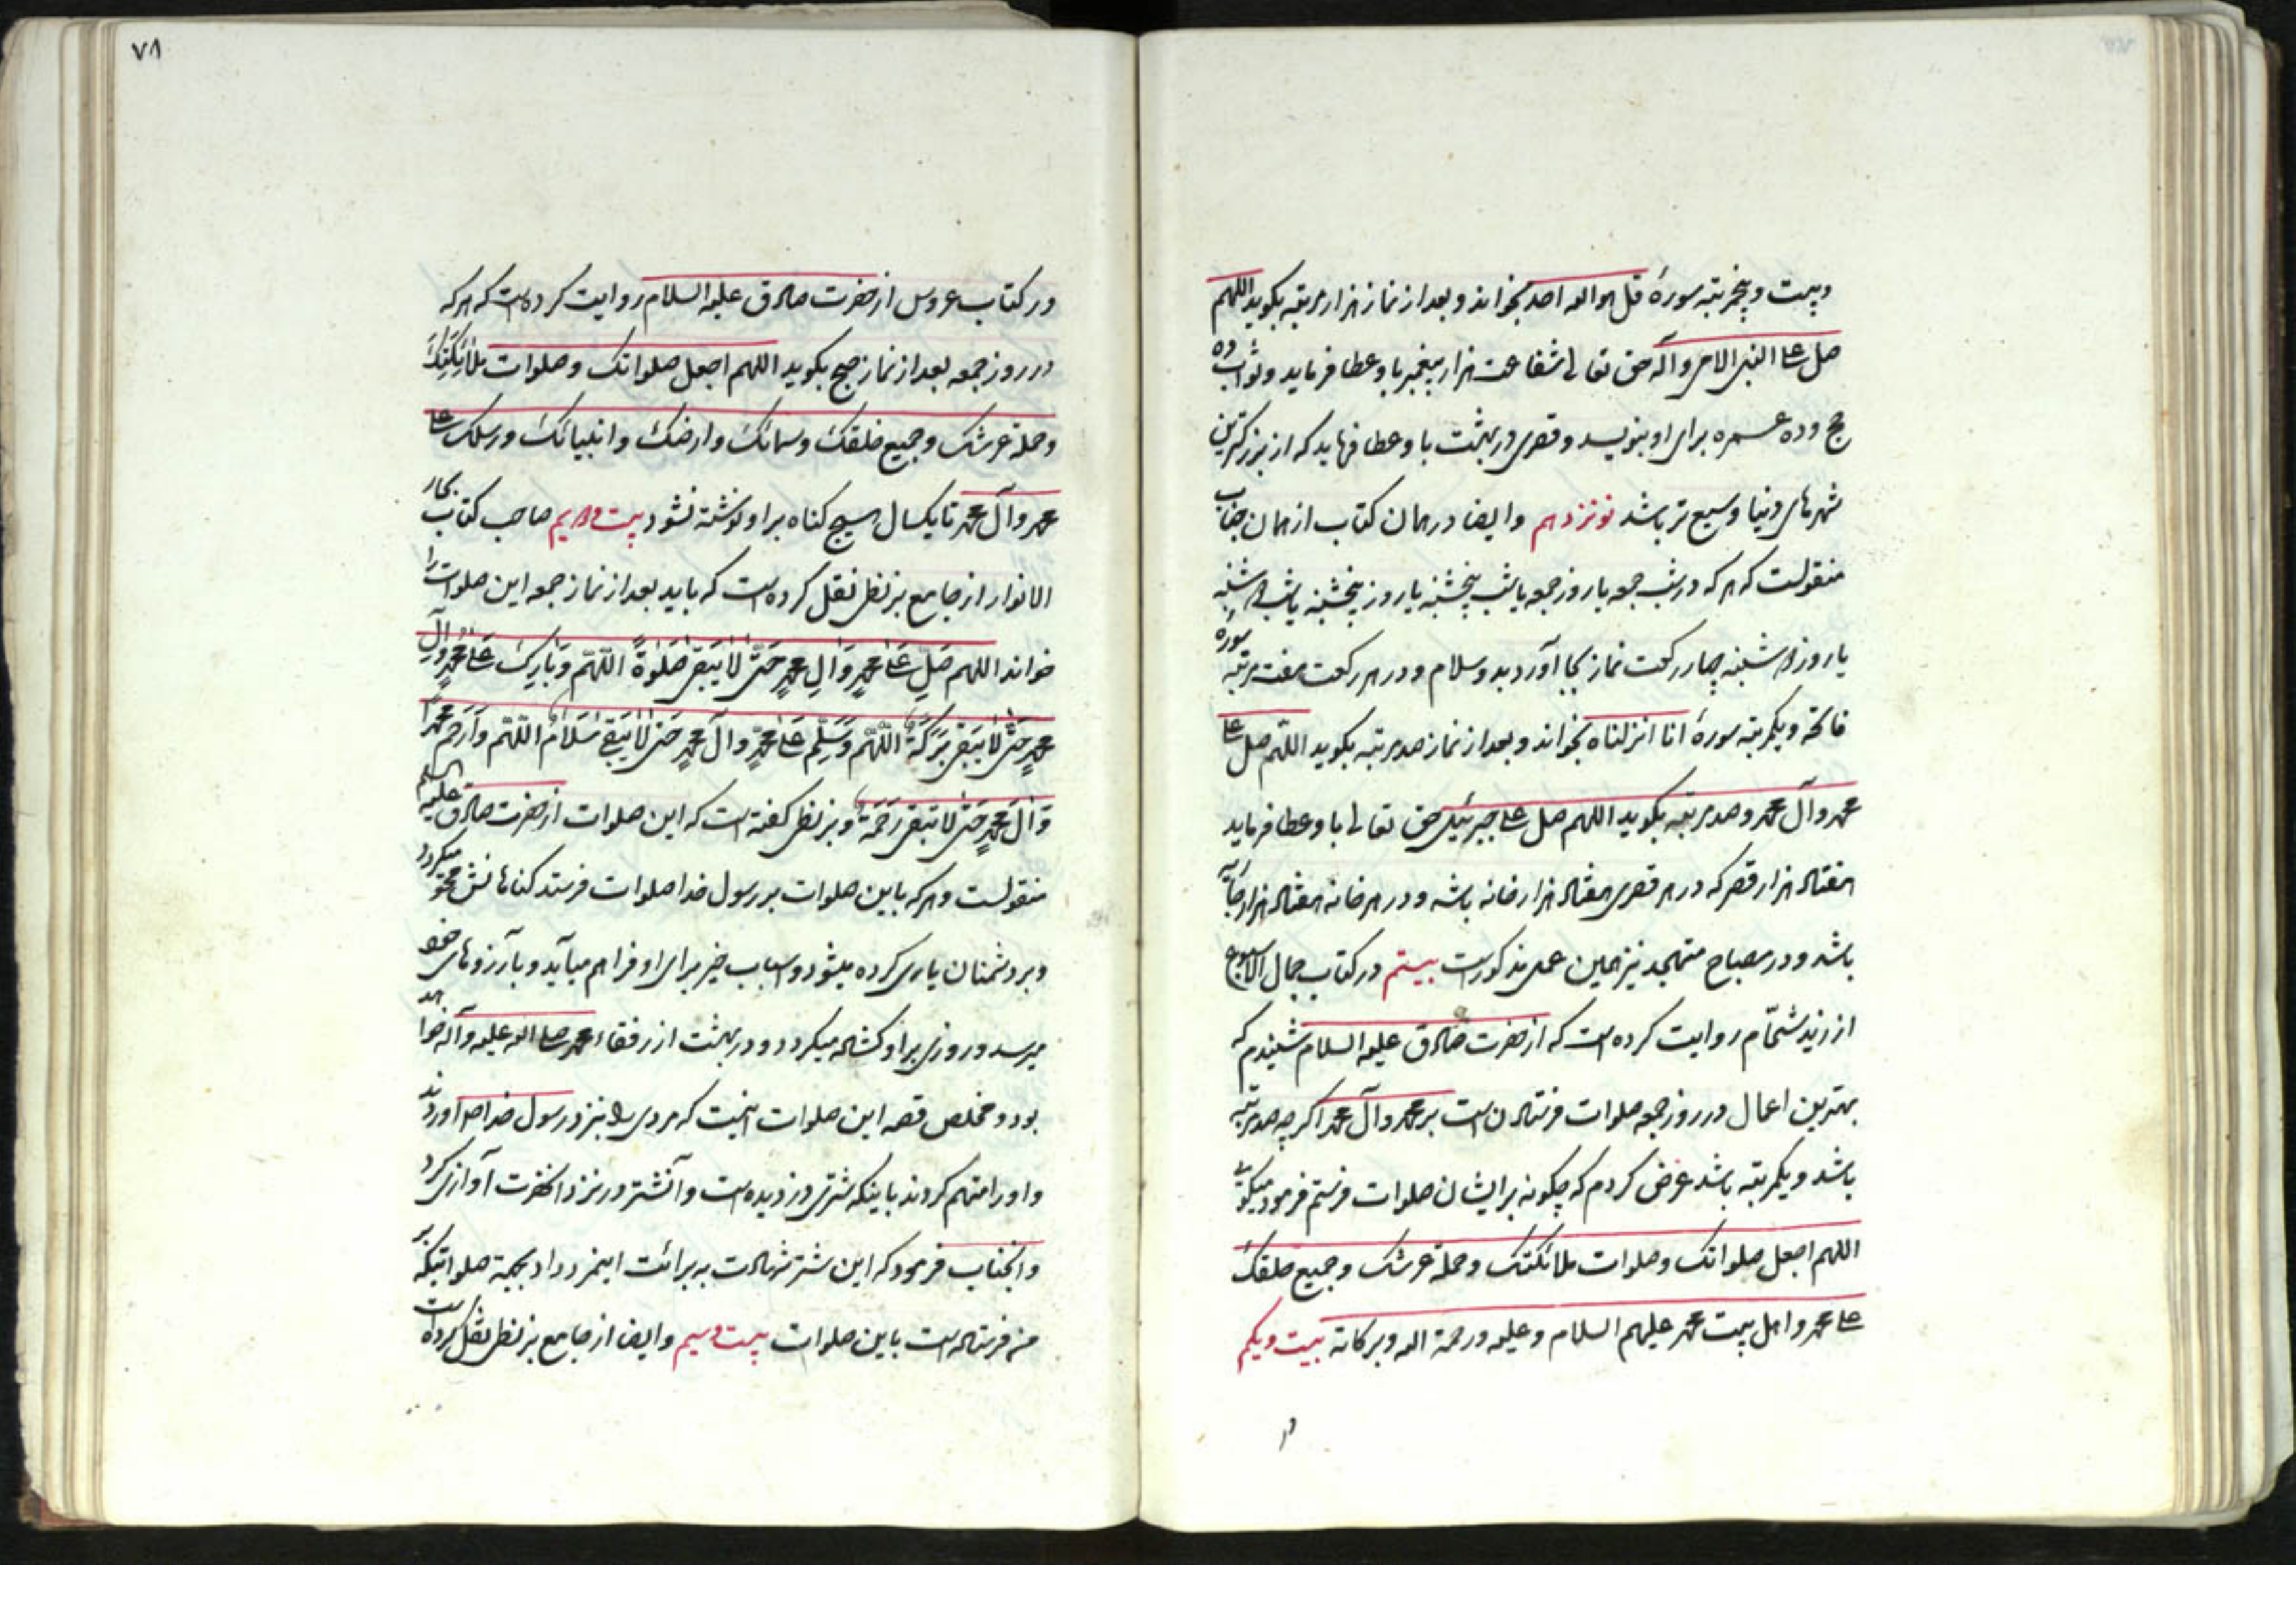 وبیست و پنجمرتبه سورهٔ قل هو الله احد بخواند و بعد از نماز هزار مرتبه بکوید اللهم
صل علی النبی الامی و آله حق تعالی شفاعت هزار پیغمبر باو عطا فرماید و ثواب ده
حج و ده عمره برای او بنویسد و قصری در بهشت باو عطا فرماید که از بزرکترین
شهرهای دنیا وسیع تر باشد نوزدهم و ایضا در همان کتاب از همان جناب
منقولست که هر که در شب جمعه یا روز جمعه یا شب پنجشنبه یا روز پنجشنبه یا شب دوشنبه
یا روز دوشنبه چهار رکعت نماز بجا آورد بدو سلام و در هر رکعت هفت مرتبه سورهٔ
فاتحه و یکمرتبه سورهٔ انا انزلناه بخواند و بعد از نماز صد مرتبه بکوید اللّهم صل علی
محمد و آل محمد و صد مرتبه بکوید اللهم صل علی جبرئیل حق تعالی باو عطا فرماید
هفتاد هزار قصر که در هر قصری هفتاد هزار خانه باشد و در هر خانه هفتاد هزار جاریه
باشد و در مصباح متهجد نیز همین عمل مذکور است بیستم در کتاب جمال الاسبوع
از زید شحّام روایت کرده است که از حضرت صادق علیه السلام شنیدم که
بهترین اعمال در روز جمعه صلوات فرستادن است بر محمد و آل محمد اکر چه صد مرتبه
باشد و یکمرتبه باشد عرض کردم که چکونه بر ایشان صلوات فرستم فرمود میکوئی
اللهم اجعل صلواتک و صلوات ملائکتک و حملة عرشک و جمیع خلقک
علی محمد و اهل بیت محمد علیهم السلام و علیه و رحمة الله و برکاته بیست و یکم
در
٧٨
در کتاب عروس از حضرت صادق علیه السلام روایت کرده است که هر که
در روز جمعه بعد از نماز صبح بکوید اللهم اجعل صلواتک و صلوات ملائکتک
و حملة عرشک و جمیع خلقک و سمائک و ارضک و انبیائک و رسلک علی
محمد و آل محمد تا یکسال هیچ کناه بر او نوشته نشود بیست و دویم صاحب کتاب بحار
الانوار از جامع بزنطی نقل کرده است که باید بعد از نماز جمعه این صلوات را
خواند اللهم صَلِّ عَلی مُحمدٍ وَ الِ محمدٍ حَتّی لا یَبقی صَلوةً اللّهُمَّ وَ بارِک عَلی مُحمدٍ و الِ
محمدٍ حَتّی لا یَبقی بَرَکَةً اللّهُمَّ وَسَلِّم عَلی مُحمدٍّ و آل محمدٍ حَتّی لا یَبقی سَلامٌ اللّهُمَّ وَ ارحَم محمداً
وَ الَ محمدٍ حَتّی لا تبقی رَحمَةً و بزنطی کفته است که این صلوات از حضرت صادق علیه السلام
منقولست و هر که باین صلوات بر رسول خدا صلوات فرستد کناهانش محو میکردد
و بر دشمنان یاری کرده میشود و اسباب خیر برای او فراهم میآید و بآرزوهای خود
میرسد و روزی بر او کشاده میکردد و در بهشت از رفقاء محمد صلی الله علیه و آله خواهد
بود و مخلص قصه این صلوات اینست که مردی را بنزد رسول خدا ص اوردند
و او را متهم کردند باینکه شتری دزدیده است و آنشتر در نزد آنحضرت آوازی کرد
و آنجناب فرمود که این شتر شهادت به برائت اینمرد داد بجهة صلواتیکه بر
من فرستاده است باین صلوات بیست و سیم و ایضا از جامع بزنطی نقل کرده است